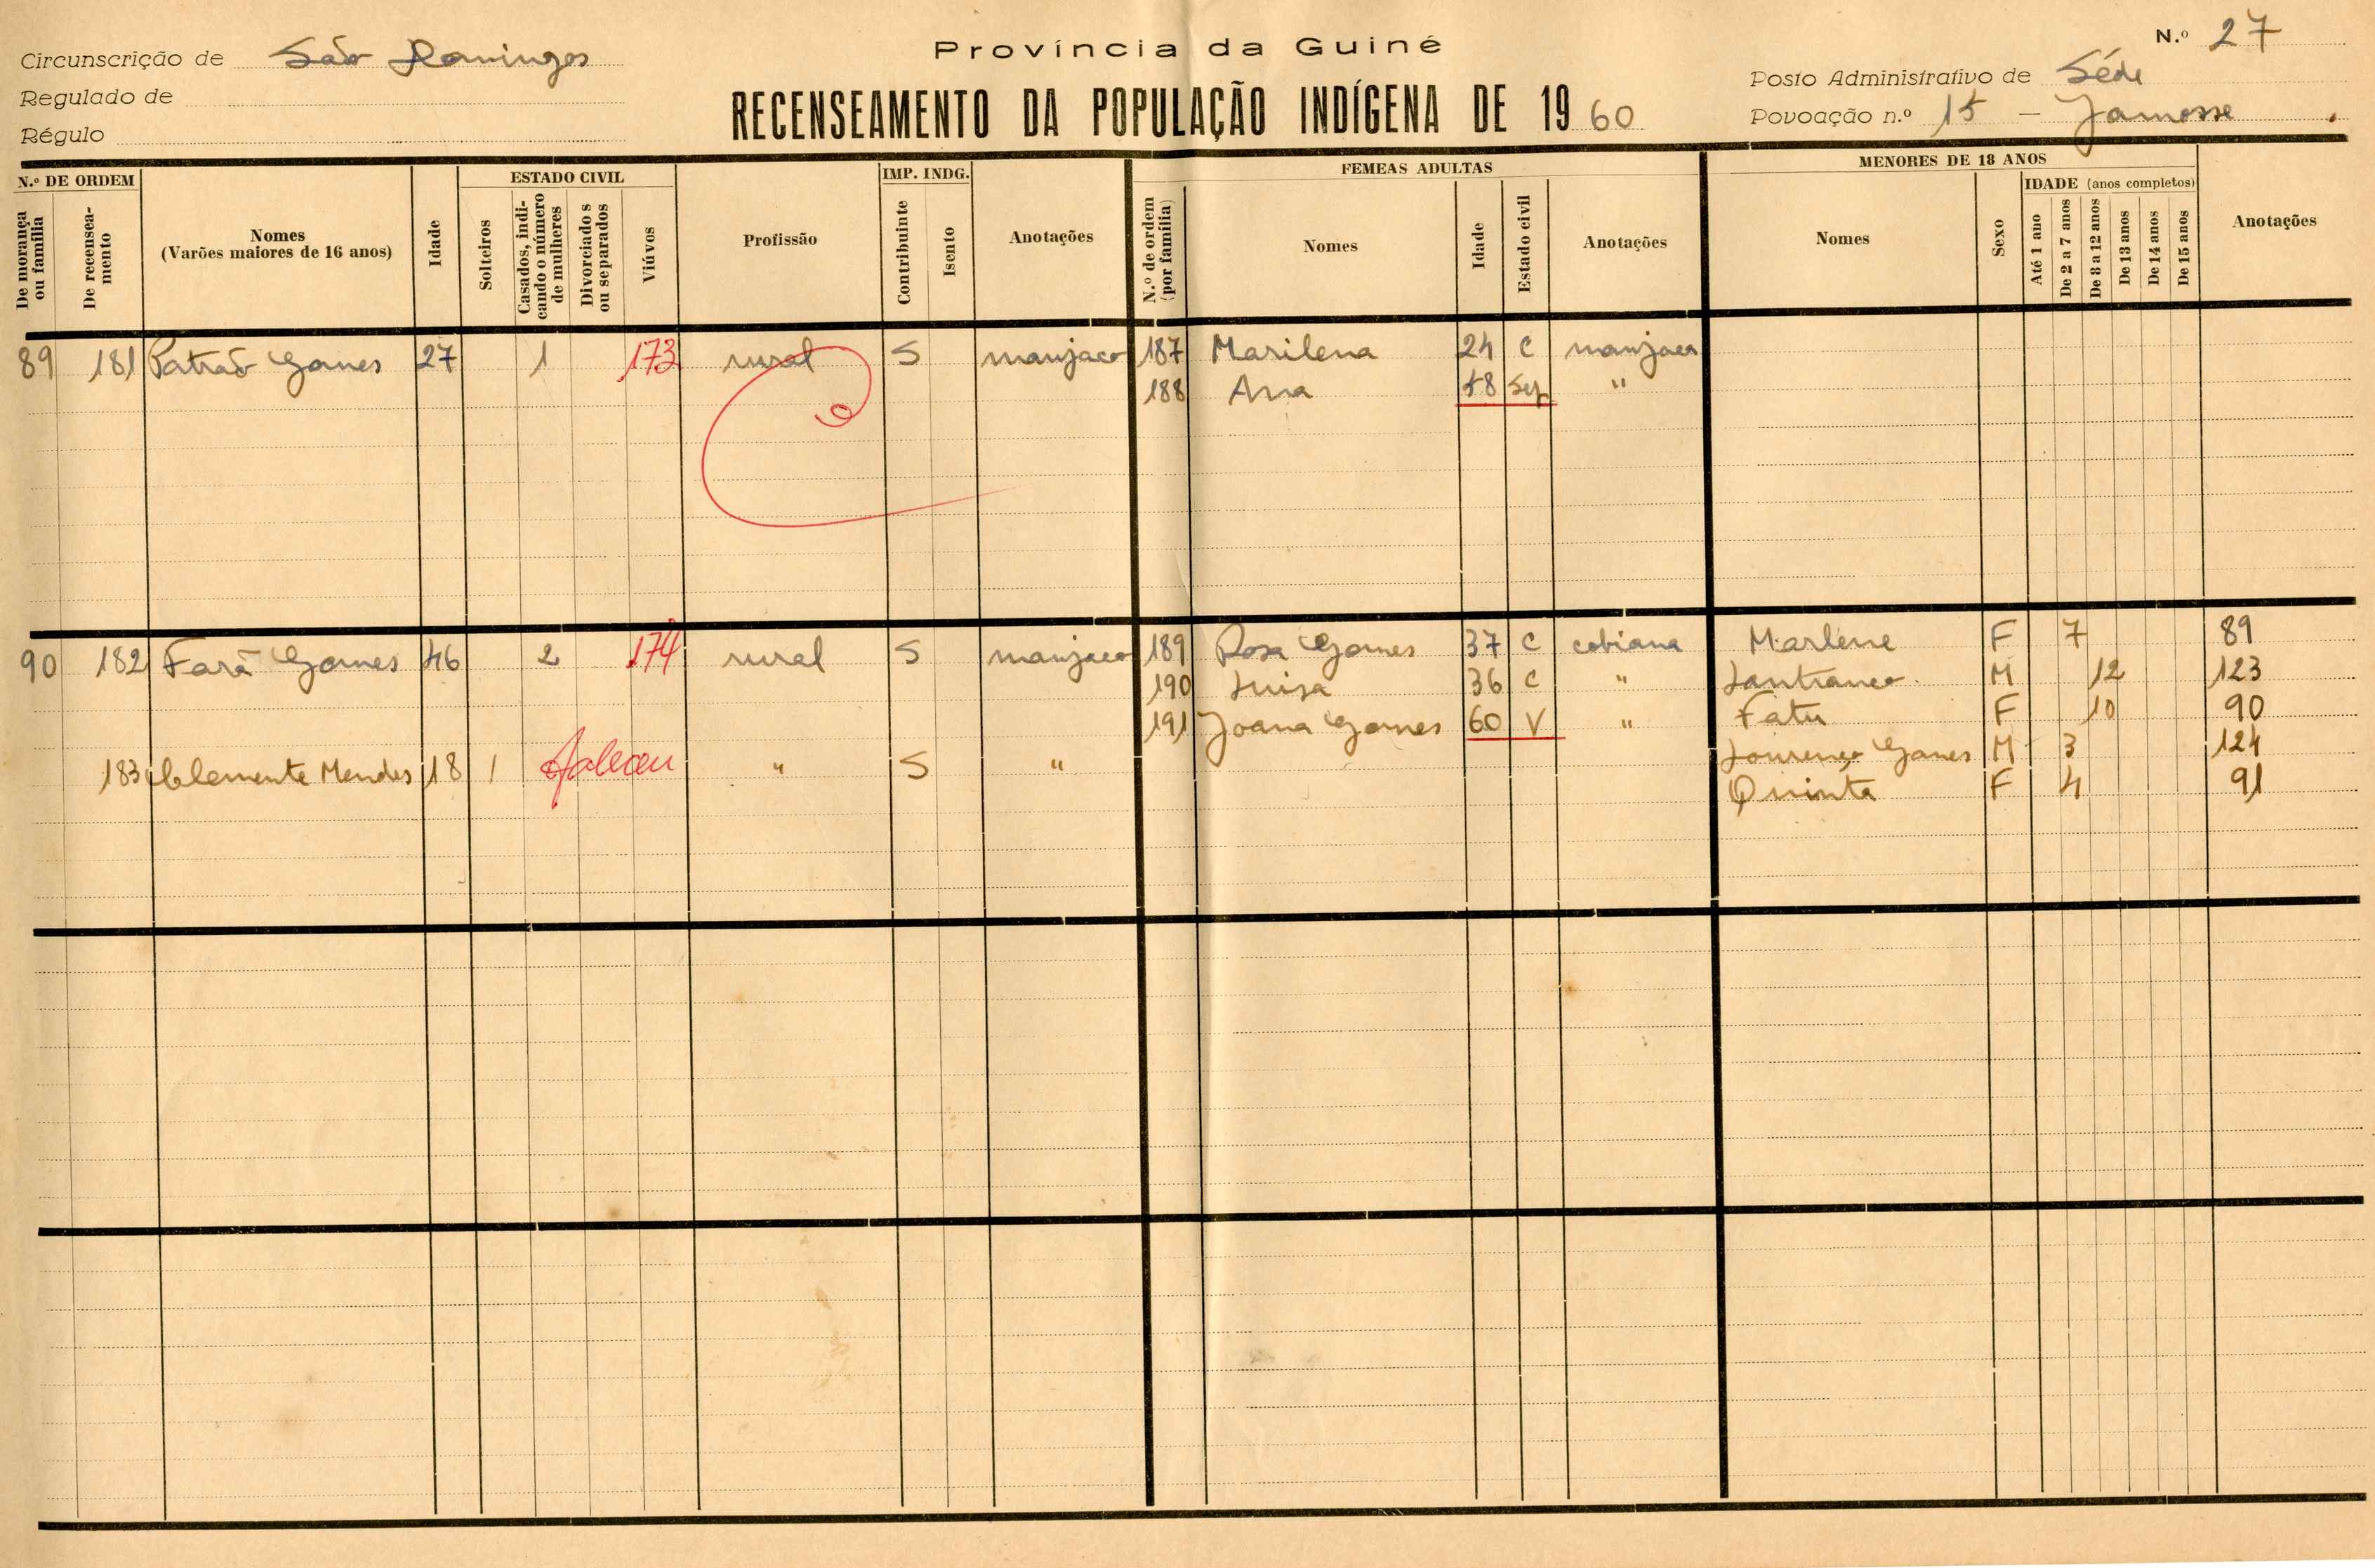 Província da Guiné
N.º 27
Circunscrição de São Domingos
Regulado de
Régulo
RECENSEAMENTO DA POPULAÇÃO INDÍGENA DE 1960
Posto Administrativo de Séde
Povoação n.º 15 — Jamosse.
N.º DE ORDEM
De morança ou família
De recenseamento
Nomes
(Varões maiores de 16 anos)
Idade
ESTADO CIVIL
Solteiros
Casados, indicando o número de mulheres
Divorciados ou separados
Viúvos
Profissão
IMP. INDG.
Contribuinte
Isento
Anotações
FEMEAS ADULTAS
N.º de ordem (por família)
Nomes
Idade
Estado civil
Anotações
MENORES DE 18 ANOS
Nomes
Sexo
IDADE (anos completos)
Até 1 ano
De 2 a 7 anos
De 8 a 12 anos
De 13 anos
De 14 anos
De 15 anos
Anotações
89 181 Patrão Gomes 27 1 173 rural S manjaco 187 Marilena 24 C manjaca
188 Ana 58 Sep "
90 182 Fará Gomes 46 2 174 rural S manjaco 189 Rosa Gomes 37 C cobiana Marlene F 7 89
190 Luisa 36 C " M 12 123
191 Joana Gomes 60 V " Fatu F 10 90
Lourenço Gomes M 3 124
183 Clemente Mendes 18 1 " S "
Quinta F 4 91